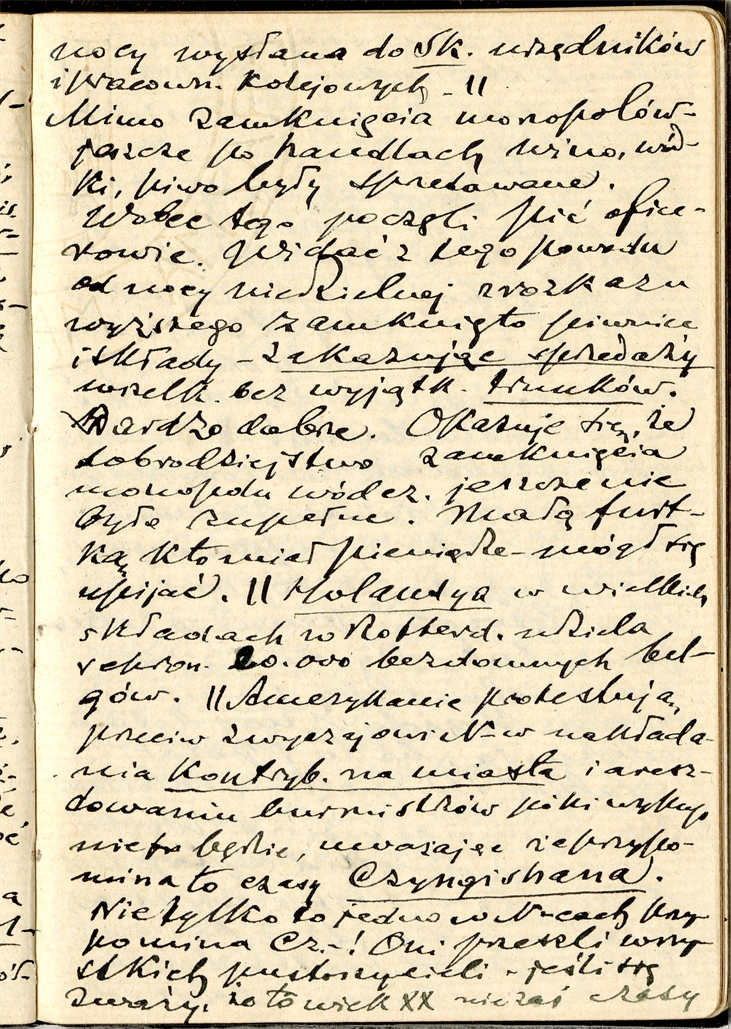 nocy wysłana do Sk. urzędników
i pracown. kolejowych – ||
Mimo zamknięcia monopolów –
jeszcze po handlach wino, wód-
ki, piwo były sprzedawane.
Wobec tego poczęli pić ofice-
rowie. Widać z tego powodu
od nocy niedzielnej z rozkazu
wyższego zamknięto piwnice
i składy – zakazując sprzedaży
wszelk. bez wyjątk. trunków.
Bardzo dobre. Okazuje się, że
dobrodziejstwo zamknięcia
monopolu wódcz. jeszcze nie
było zupełne. Małą furt-
ką, kto miał pieniądze – mógł się
upijać. || Holandya w wielkich
składach w Rotterd. udziela
schron. 20.000 bezdomnych bel-
gów. || Amerykanie protestują,
przeciw zwyczajowi N– w nakłada-
nia Kontryb. na miasta i aresz-
towaniu burmistrzów póki wykup
nie będzie, uważając że przypo-
mina to czasy Czyngishana.
Nie tylko to jedno w N–cach przy-
pomina Cz.–! Oni prześli wszy-
stkich pustoszycieli – jeśli się
zważy, że to wiek XX nie zaś czasy